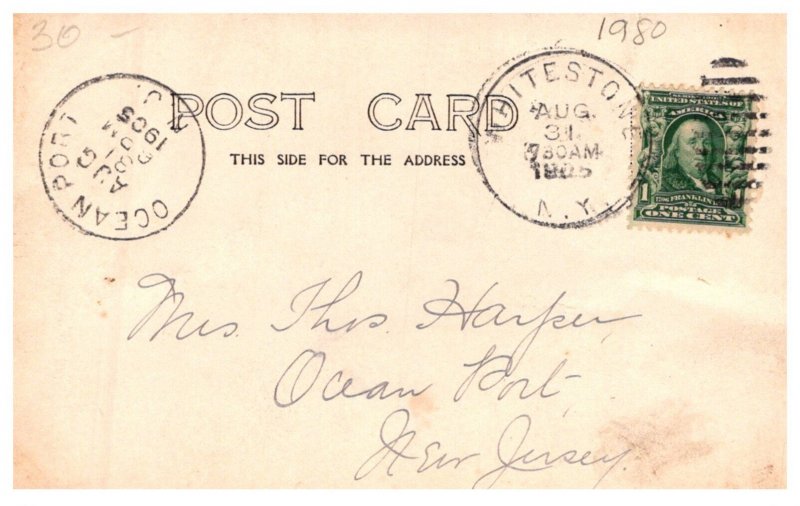 30 -
1980
POST CARD
THIS SIDE FOR THE ADDRESS
OCEAN PORT
AUG
1905
WHITESTONE
AUG.
31.
730AM
1905
N.Y.
UNITED STATES OF
AMERICA
1
FRANKLIN
POSTAGE
ONE CENT
Mrs. Thos. Harper,
Ocean Port,
New Jersey.